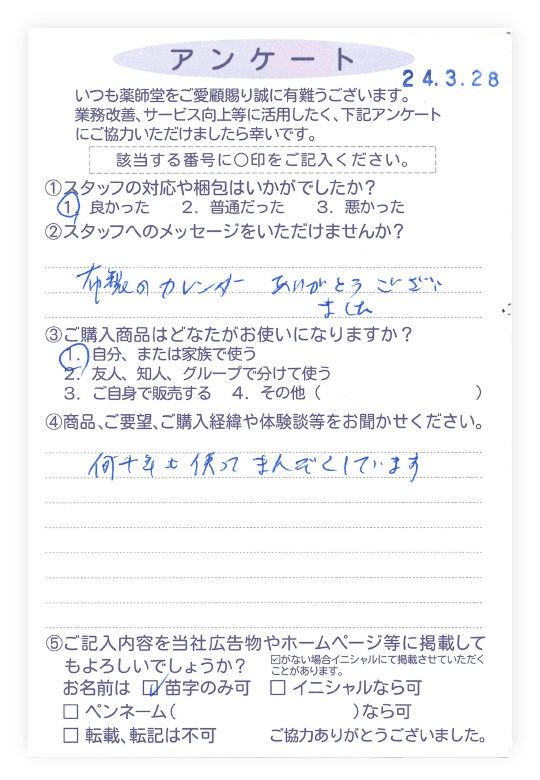 アンケート
24.3.28
いつも薬師堂をご愛顧賜り誠に有難うございます。
業務改善、サービス向上等に活用したく、下記アンケート
にご協力いただけましたら幸いです。
該当する番号に〇印をご記入ください。
①スタッフの対応や梱包はいかがでしたか？
1. 良かった 2. 普通だった 3. 悪かった
②スタッフへのメッセージをいただけませんか？
布製のカレンダー ありがとうござい
ました
③ご購入商品はどなたがお使いになりますか？
1. 自分、または家族で使う
2. 友人、知人、グループで分けて使う
3. ご自身で販売する 4. その他（ ）
④商品、ご要望、ご購入経緯や体験談等をお聞かせください。
何十年も使って まんぞくしています
⑤ご記入内容を当社広告物やホームページ等に掲載して
もよろしいでしょうか？ ☑がない場合イニシャルにて掲載させていただく
ことがあります。
お名前は ☑ 苗字のみ可 □ イニシャルなら可
□ ペンネーム( )なら可
□ 転載、転記は不可 ご協力ありがとうございました。